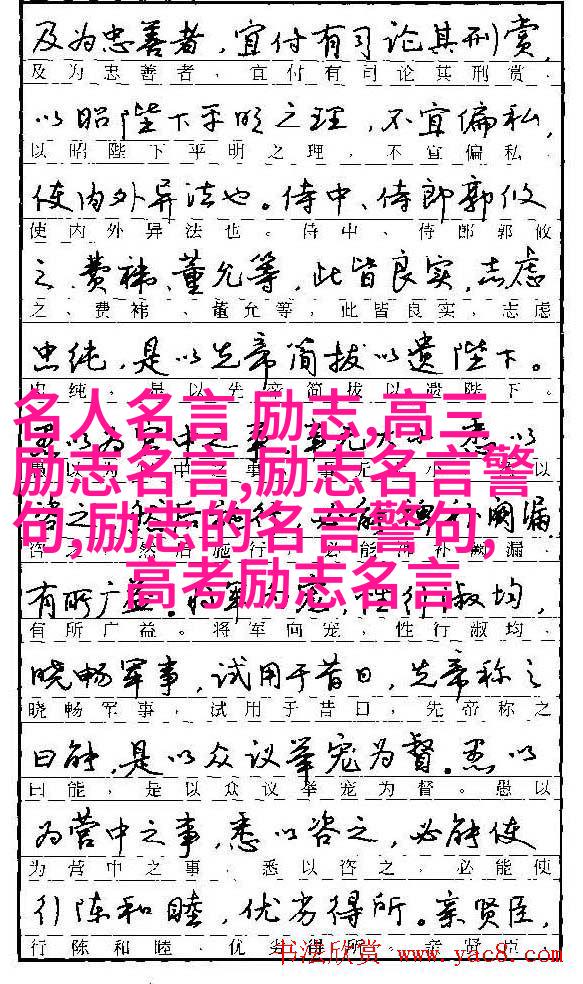 及为忠善者，宜付有司论其刑赏，
及为忠善者，宜付有司论其刑赏，
以昭陛下平明之理，不宜偏私，
以昭陛下平明之理，不宜偏私，
使内外异法也。侍中、侍郎郭攸
使内外异法也。侍中、侍郎郭攸
之、费祎、董允等，此皆良实，志虑
之、费祎、董允等，此皆良实，志虑
忠纯，是以先帝简拔以遗陛下。
忠纯，是以先帝简拔以遗陛下。
名人名言 励志,高三
励志名言,励志名言警
句,励志的名言警句,
高考励志名言
以为宫中之事，事无大小 悉以
以为 中之事 事无 小 以
咨之 然后施行，必能裨补阙漏，
咨之，然后施行，必能裨补阙漏，
有所广益。将军向宠，性行淑均，
有所广益。将军向宠，性行淑均，
晓畅军事，试用于昔日，先帝称之
晓畅军事，试用于昔日，先帝称之
曰能，是以众议举宠为督。愚以
曰能，是以众议举宠为督。愚以
为营中之事，悉以咨之，必能使
为营中之事，悉以咨之，必能使
行陈和睦，优劣得所。亲贤臣，
行陈和睦，优劣得所。亲贤臣，
书法欣赏 www.yac8.com